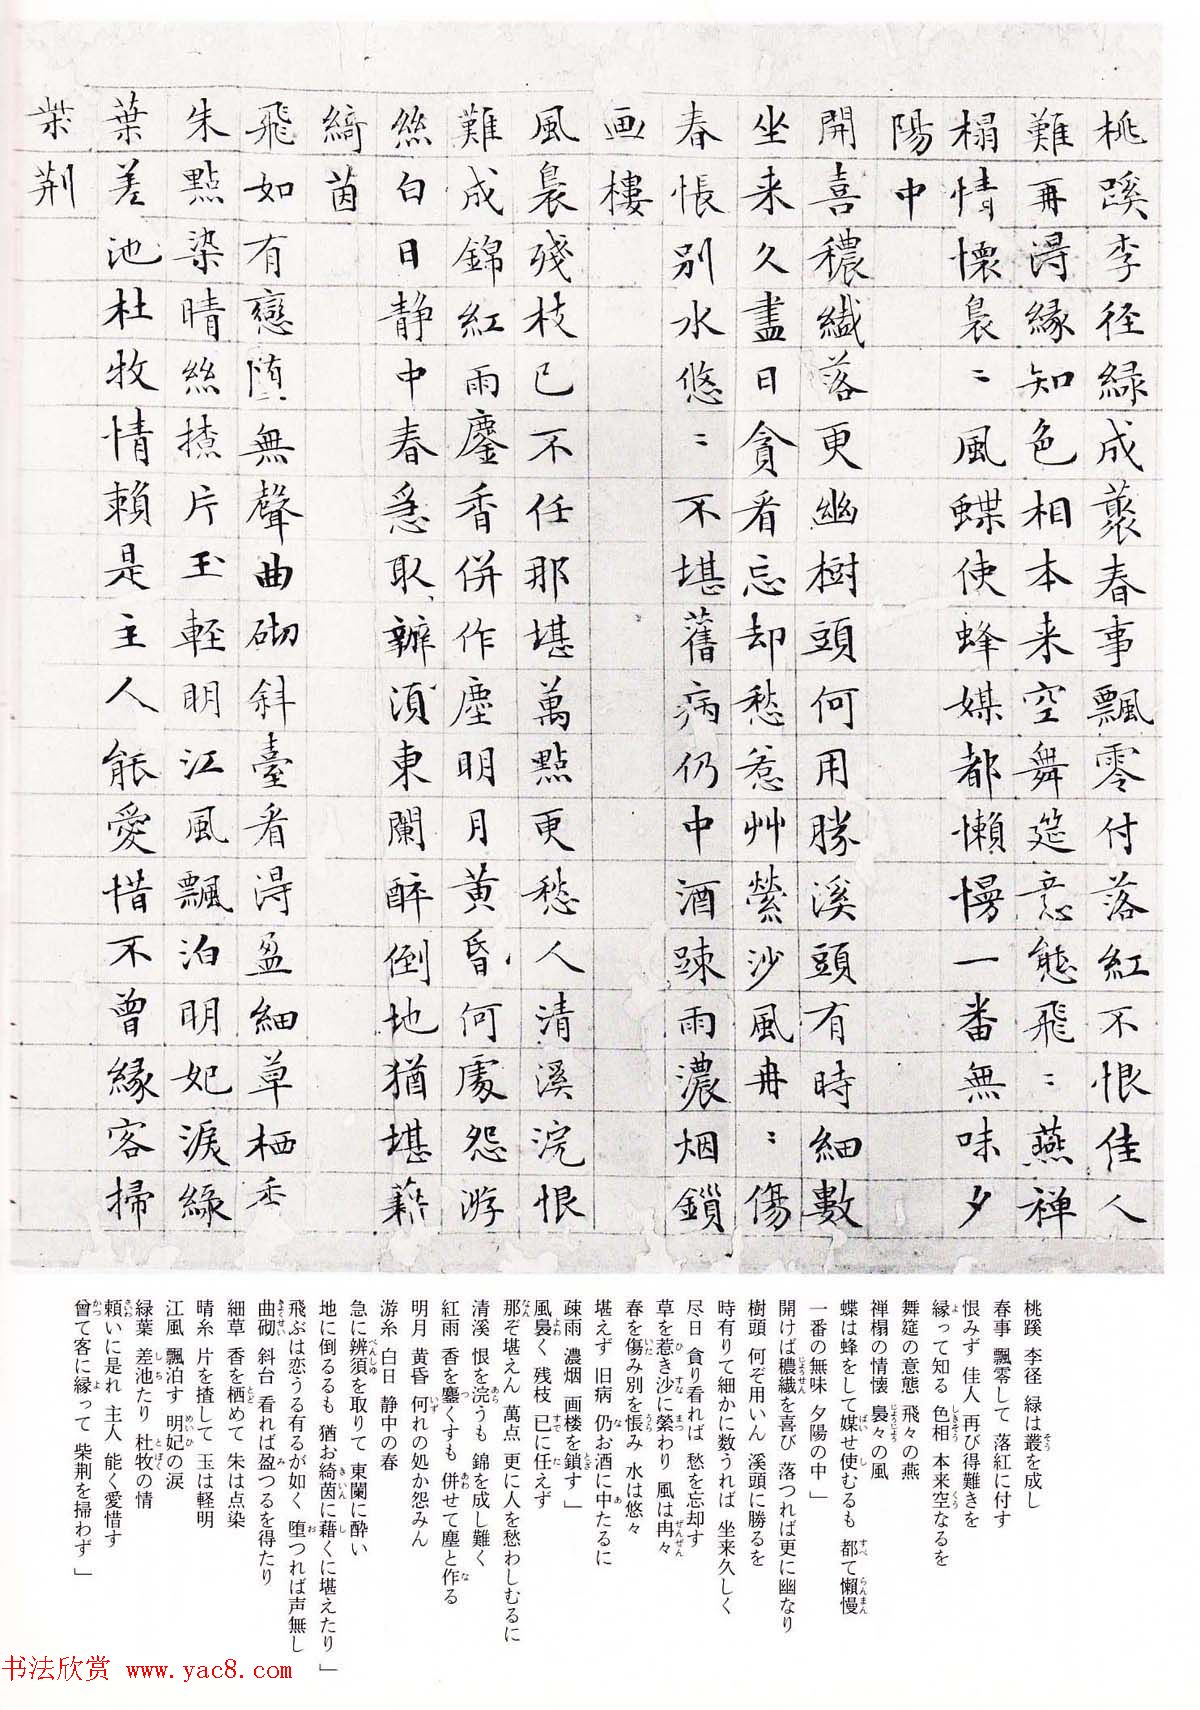 桃蹊李径緑成藂春事飄零付落紅不恨佳人
難再得縁知色相本来空舞筵意態飛〻燕禅
榻情懐裊〻風蝶使蜂媒都懶慢一番無味夕
陽中
開喜穠纎落更幽樹頭何用勝溪頭有時細數
坐来久盡日貪看忘却愁惹艸縈沙風冉〻傷
春悵別水悠〻不堪舊病仍中酒踈雨濃烟鎖
画樓
風裊殘枝已不任那堪萬點更愁人清溪浣恨
難成錦紅雨鏖香併作塵明月黄昏何處怨游
絲白日静中春急取辦湏東闌醉倒地猶堪藉
綺茵
飛如有戀堕無聲曲砌斜臺看得盈細草栖香
朱點染晴絲揸片玉軽明江風飄泊明妃淚緑
葉差池杜牧情頼是主人能愛惜不曾縁客掃
柴荆
桃蹊 李径 緑は叢を成し
春事 飄零して 落紅に付す
恨みず 佳人 再び得難きを
縁って知る 色相 本来空なるを
舞筵の意態 飛々の燕
禅榻の情懐 裊々の風
蝶は蜂をして媒せ使むるも 都て懶慢
一番の無味 夕陽の中」
開けば穠繊を喜び 落つれば更に幽なり
樹頭 何ぞ用いん 溪頭に勝るを
時有りて細かに数うれば 坐来久しく
尽日 貪り看れば 愁を忘却す
草を惹き沙に縈わり 風は冉々
春を傷み別を悵み 水は悠々
堪えず 旧病 仍お酒に中たるに
疎雨 濃烟 画楼を鎖す」
風裊く 残枝 已に任えず
那ぞ堪えん 萬点 更に人を愁わしむるに
清溪 恨を浣うも 錦を成し難く
紅雨 香を鏖くすも 併せて塵と作る
明月 黄昏 何れの処か怨みん
游糸 白日 静中の春
急に辨須を取りて 東闌に酔い
地に倒るるも 猶お綺茵に藉くに堪えたり」
飛ぶは恋うる有るが如く 堕つれば声無し
曲砌 斜台 看れば盈つるを得たり
細草 香を栖めて 朱は点染
晴糸 片を揸して 玉は軽明
江風 飄泊す 明妃の涙
緑葉 差池たり 杜牧の情
頼いに是れ 主人 能く愛惜す
曾て客に縁って 柴荆を掃わず」
书法欣赏 www.yac8.com